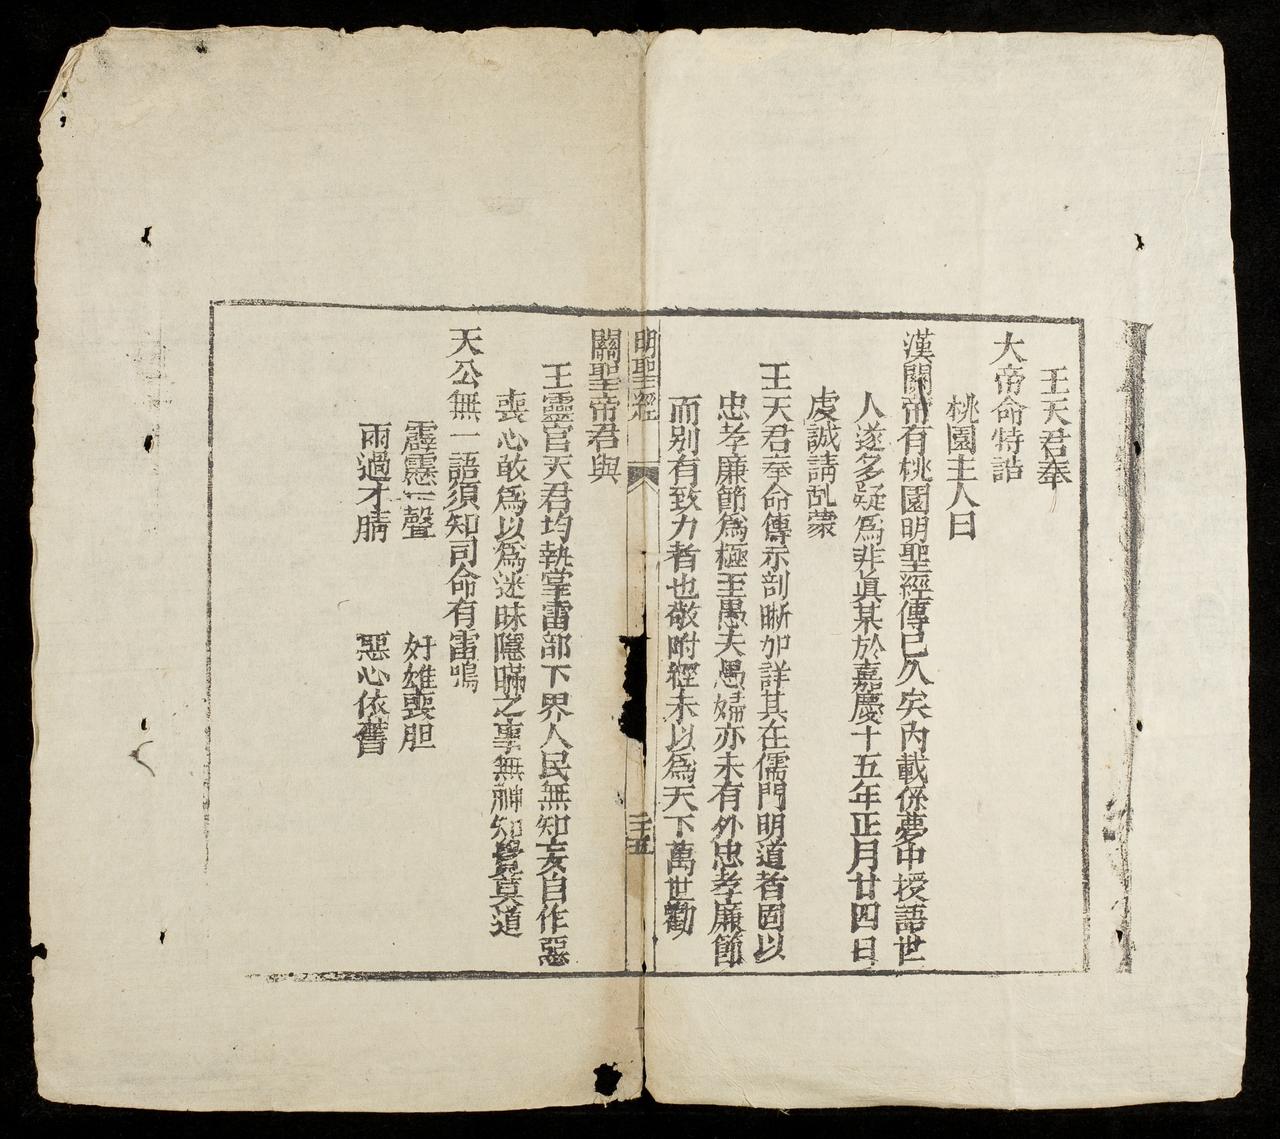 王天君奉
大帝命特誥
桃園主人曰
漢關帝有桃園明聖經傳已久矣內載係夢中授語世
人遂多疑為非眞某於嘉慶十五年正月廿四日
虔誠請乩蒙
王天君奉命傳示剖晰加詳其在儒門明道者固以
忠孝廉節為極至愚夫愚婦亦未有外忠孝廉節
而別有致力者也敬附經末以為天下萬世勸
明聖經
二十五
關聖帝君與
王靈官天君均執掌雷部下界人民無知妄自作惡
喪心敢為以為迷昧隱瞞之事無神知覺莫道
天公無一語須知司命有雷鳴
霹靂一聲 奸雄喪胆
雨過才腈 惡心依舊